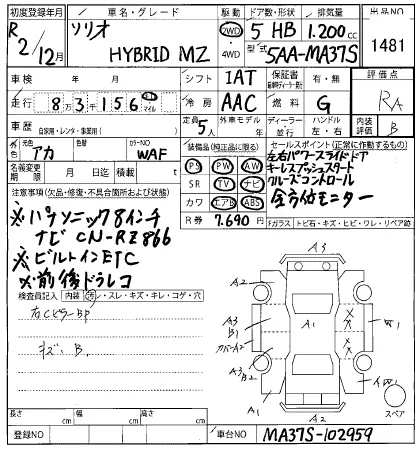 初度登録年月 車名・グレード 駆動 ドア数・形状 排気量 出品NO
R2/12月 ソリオ HYBRID MZ 2WD ・4WD 5 HB 1.200cc 1481
型式 5AA-MA37S
車検 年 月 シフト IAT 保証書 有・無 評価点
走行 8万3千156 マイル 冷房 AAC 燃料 G RA
車歴 自家用・レンタ・事業用( ) 定員 5人 外車モデル 年 ディーラー 並行 ハンドル 左・右 内装評価 B
元色 アカ 色替 カラーNO WAF
装備品(純正品に限る) セールスポイント(正常に作動するもの)
名義変更期限 月 日 リサイクル預託金 円
PS PW AW
SR TV ナビ
カワ エアB ABS
R券 7.690円
左右パワースライドドア
キーレスプッシュスタート
クルーズコントロール
全方位モニター
注意事項(欠品・修復・不具合箇所および状態)
※パナソニック8インチ
ナビ CN-RE866
※ビルトインETC
※前後ドラレコ
Fガラス トビ石・キズ・ヒビ・ワレ・リペア跡
検査員記入 内装 汚レ・スレ・キズ・キレ・コゲ・穴
右CピラーBP
キズ・B.
A3
A3
B1
カバーA2
A1
A3
B2
A1
A2
スペア
長さ cm 幅 cm 高さ cm
登録NO 車台NO MA37S-102959